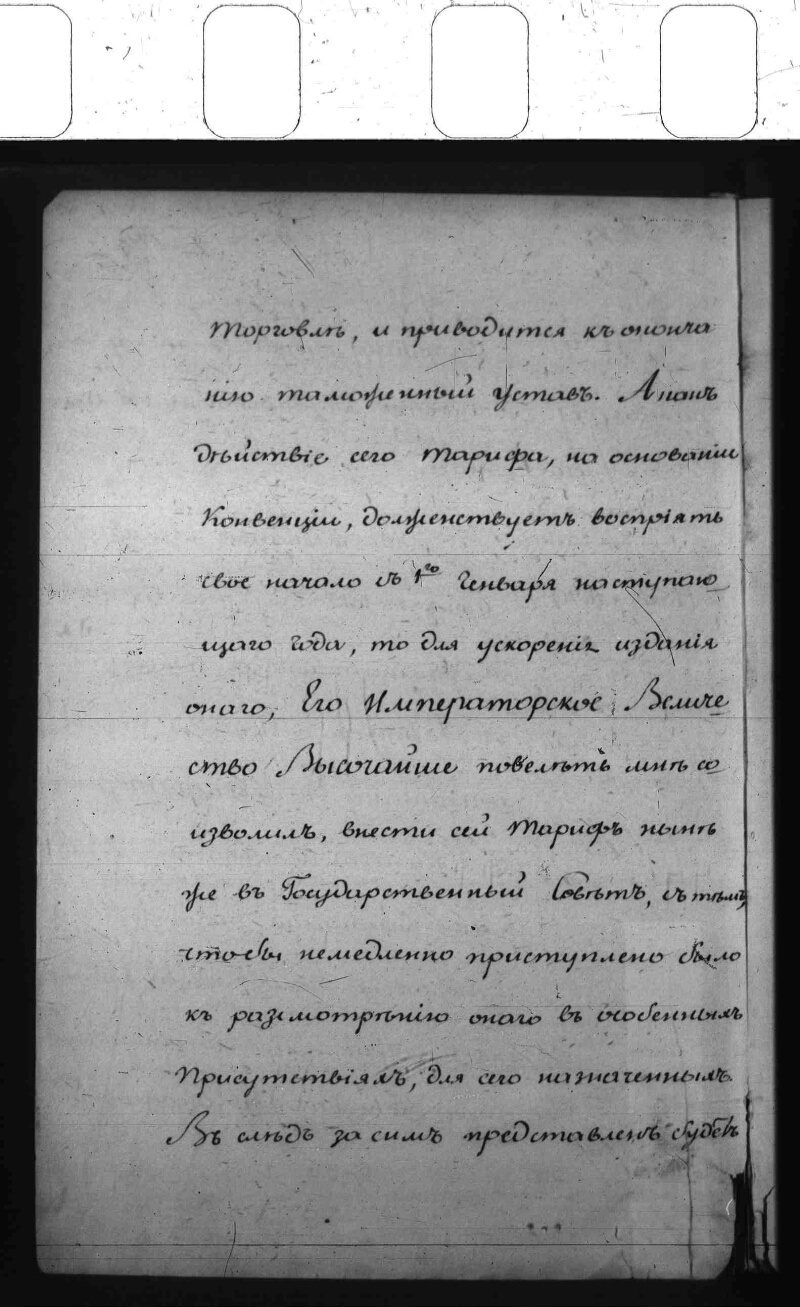 торговлѣ, и приводится къ оконча
нію таможенный уставъ. А какъ
дѣйствіе сего тарифа, на основаніи
Конвенціи, долженствуетъ воспріять
свое начало съ 1го Генваря наступаю
щаго года, то для ускоренія изданія
онаго, Его Императорское Величе
ство Высочайше повелѣть мнѣ со
изволилъ, внести сей тарифъ нынѣ
же въ Государственный Совѣтъ, съ тѣмъ,
чтобы немедленно приступлено было
къ разсмотрѣнію онаго въ особенныхъ
Присутствіяхъ, для сего назначенныхъ.
Въ слѣдъ за симъ представленъ будетъ